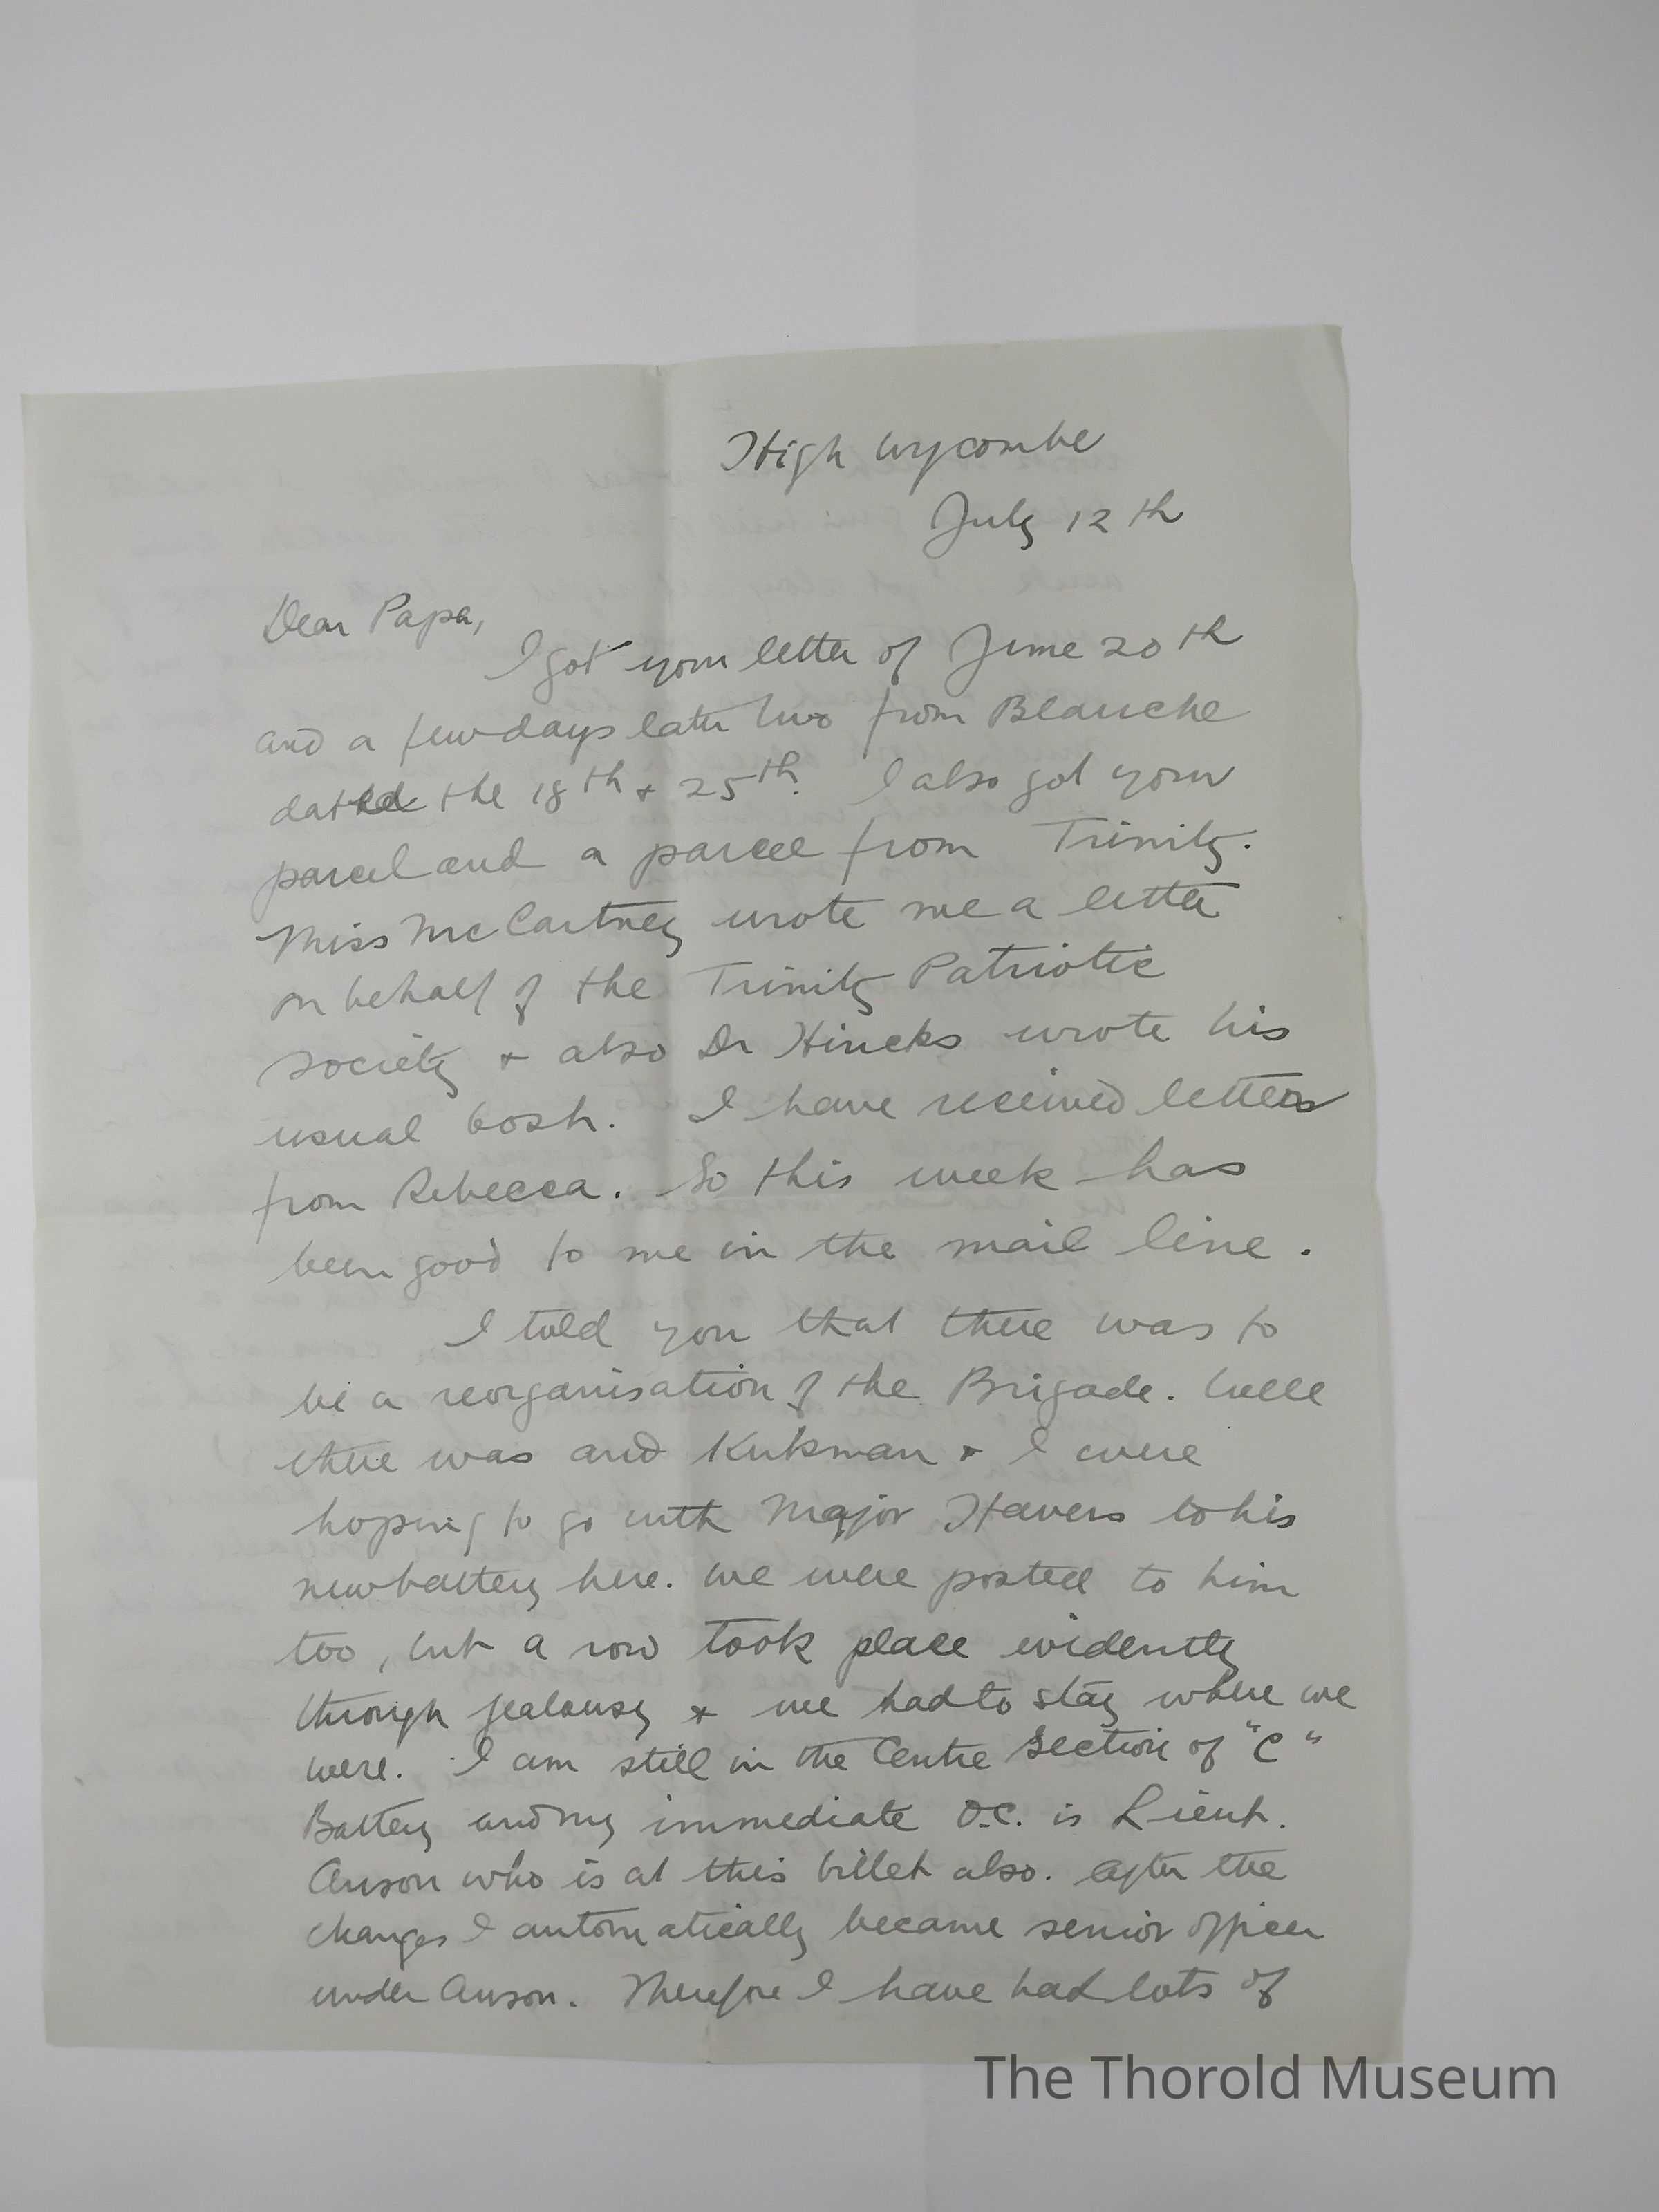 High Wycombe
July 12th
Dear Papa,
I got your letter of June 20th
and a few days later two from Blanche
dated the 18th & 25th. I also got your
parcel and a parcel from Trinity.
Miss McCartney wrote me a letter
on behalf of the Trinity Patriotic
Society & also Dr Hincks wrote his
usual bosh. I have received letters
from Rebecca. So this week has
been good to me in the mail line.
I told you that there was to
be a reorganisation of the Brigade. Well
there was and Kirkman & I were
hoping to go with Major Havers to his
new battery here. We were posted to him
too, but a row took place evidently
through jealousy & we had to stay where we
were. I am still in the Centre Section of "C"
Battery and my immediate O.C. is Lieut.
Anson who is at this billet also. After the
changes I automatically became senior officer
under Anson. Therefore I have had lots of
The Thorold Museum